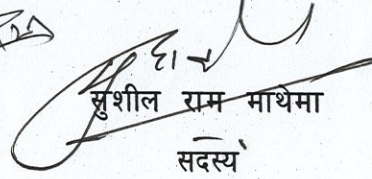 सुशील राम माथेमा
सदस्य